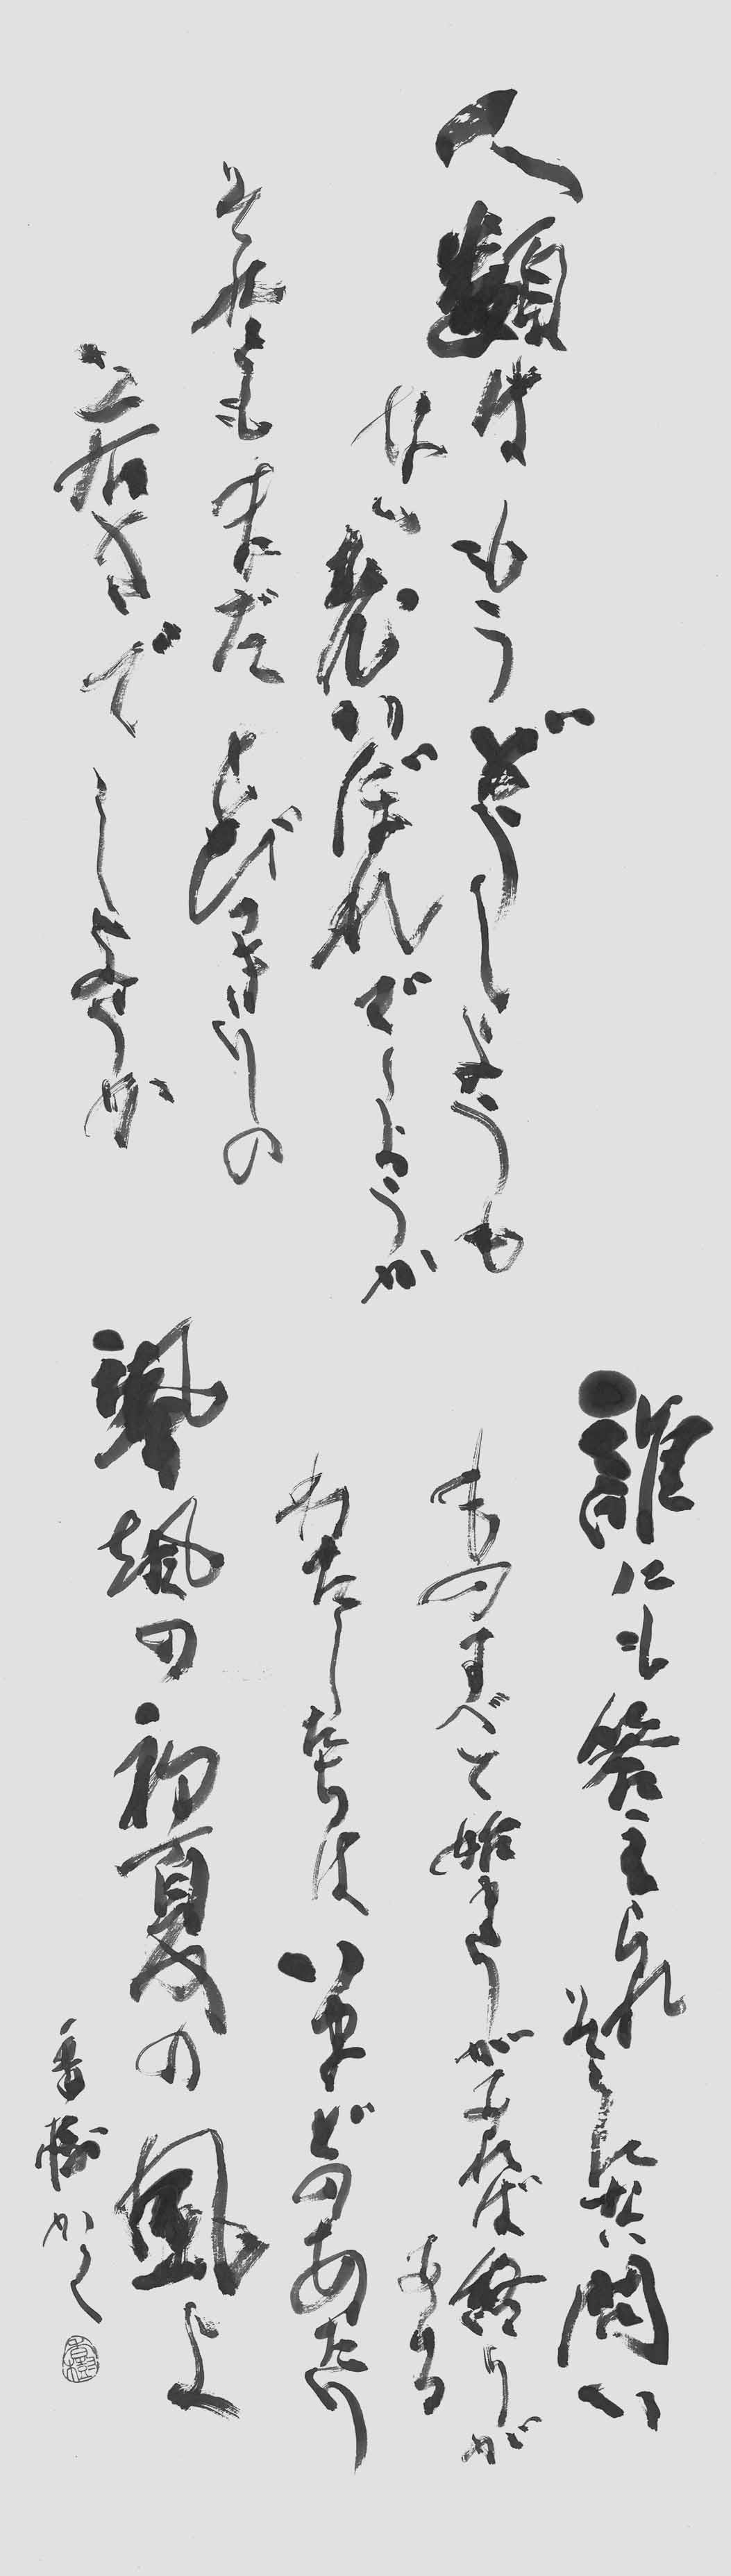 人類は もうどうしようも
ない老いぼれでしょうか
それとも まだ とびきりの
若さでしょうか
誰にも答えられ
そうにない問い
ものすべて始まりがあれば終りが
ある
わたしたちは いまどのあたり
颯颯の初夏の風よ
香樹かく